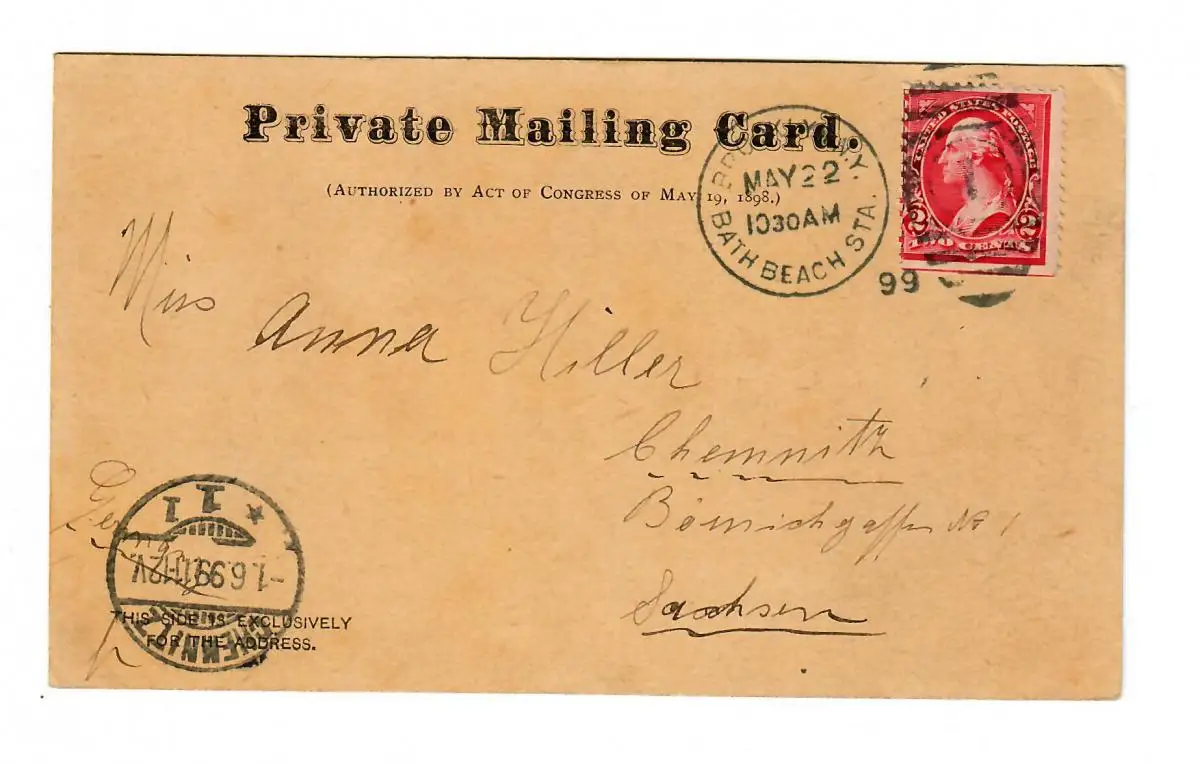 Private Mailing Card.
(AUTHORIZED BY ACT OF CONGRESS OF MAY 19, 1898.)
BROOKLYN, N.Y.
MAY 22
10 30 AM
BATH BEACH STA.
99
UNITED STATES POSTAGE
2 2
TWO CENTS
Miss Anna Hiller
Chemnitz
No 1
Sachsen
Germany
CHEMNITZ
-1.6.99.11-12V
* 1 1
THIS SIDE IS EXCLUSIVELY
FOR THE ADDRESS.